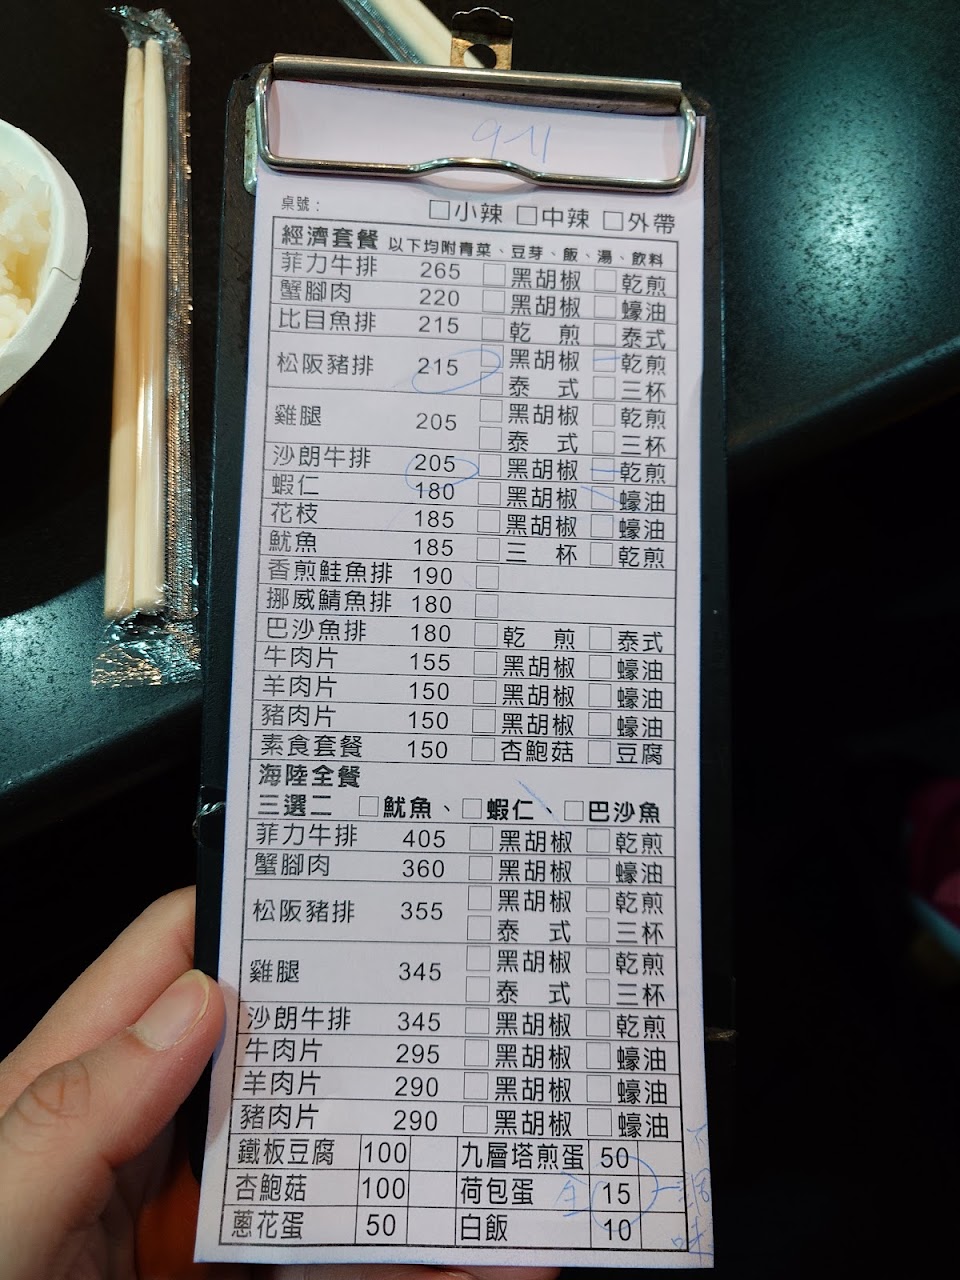 9-11
桌號： □小辣 □中辣 □外帶
經濟套餐 以下均附青菜、豆芽、飯、湯、飲料
菲力牛排 265 □黑胡椒 □乾煎
蟹腳肉 220 □黑胡椒 □蠔油
比目魚排 215 □乾 煎 □泰式
松阪豬排 215 □黑胡椒 □乾煎
□泰 式 □三杯
雞腿 205 □黑胡椒 □乾煎
□泰 式 □三杯
沙朗牛排 205 □黑胡椒 □乾煎
蝦仁 180 □黑胡椒 □蠔油
花枝 185 □黑胡椒 □蠔油
魷魚 185 □三 杯 □乾煎
香煎鮭魚排 190 □
挪威鯖魚排 180 □
巴沙魚排 180 □乾 煎 □泰式
牛肉片 155 □黑胡椒 □蠔油
羊肉片 150 □黑胡椒 □蠔油
豬肉片 150 □黑胡椒 □蠔油
素食套餐 150 □杏鮑菇 □豆腐
海陸全餐
三選二 □魷魚、□蝦仁、□巴沙魚
菲力牛排 405 □黑胡椒 □乾煎
蟹腳肉 360 □黑胡椒 □蠔油
松阪豬排 355 □黑胡椒 □乾煎
□泰 式 □三杯
雞腿 345 □黑胡椒 □乾煎
□泰 式 □三杯
沙朗牛排 345 □黑胡椒 □乾煎
牛肉片 295 □黑胡椒 □蠔油
羊肉片 290 □黑胡椒 □蠔油
豬肉片 290 □黑胡椒 □蠔油
鐵板豆腐 100 九層塔煎蛋 50
杏鮑菇 100 荷包蛋 全 15
蔥花蛋 50 白飯 10
不調味